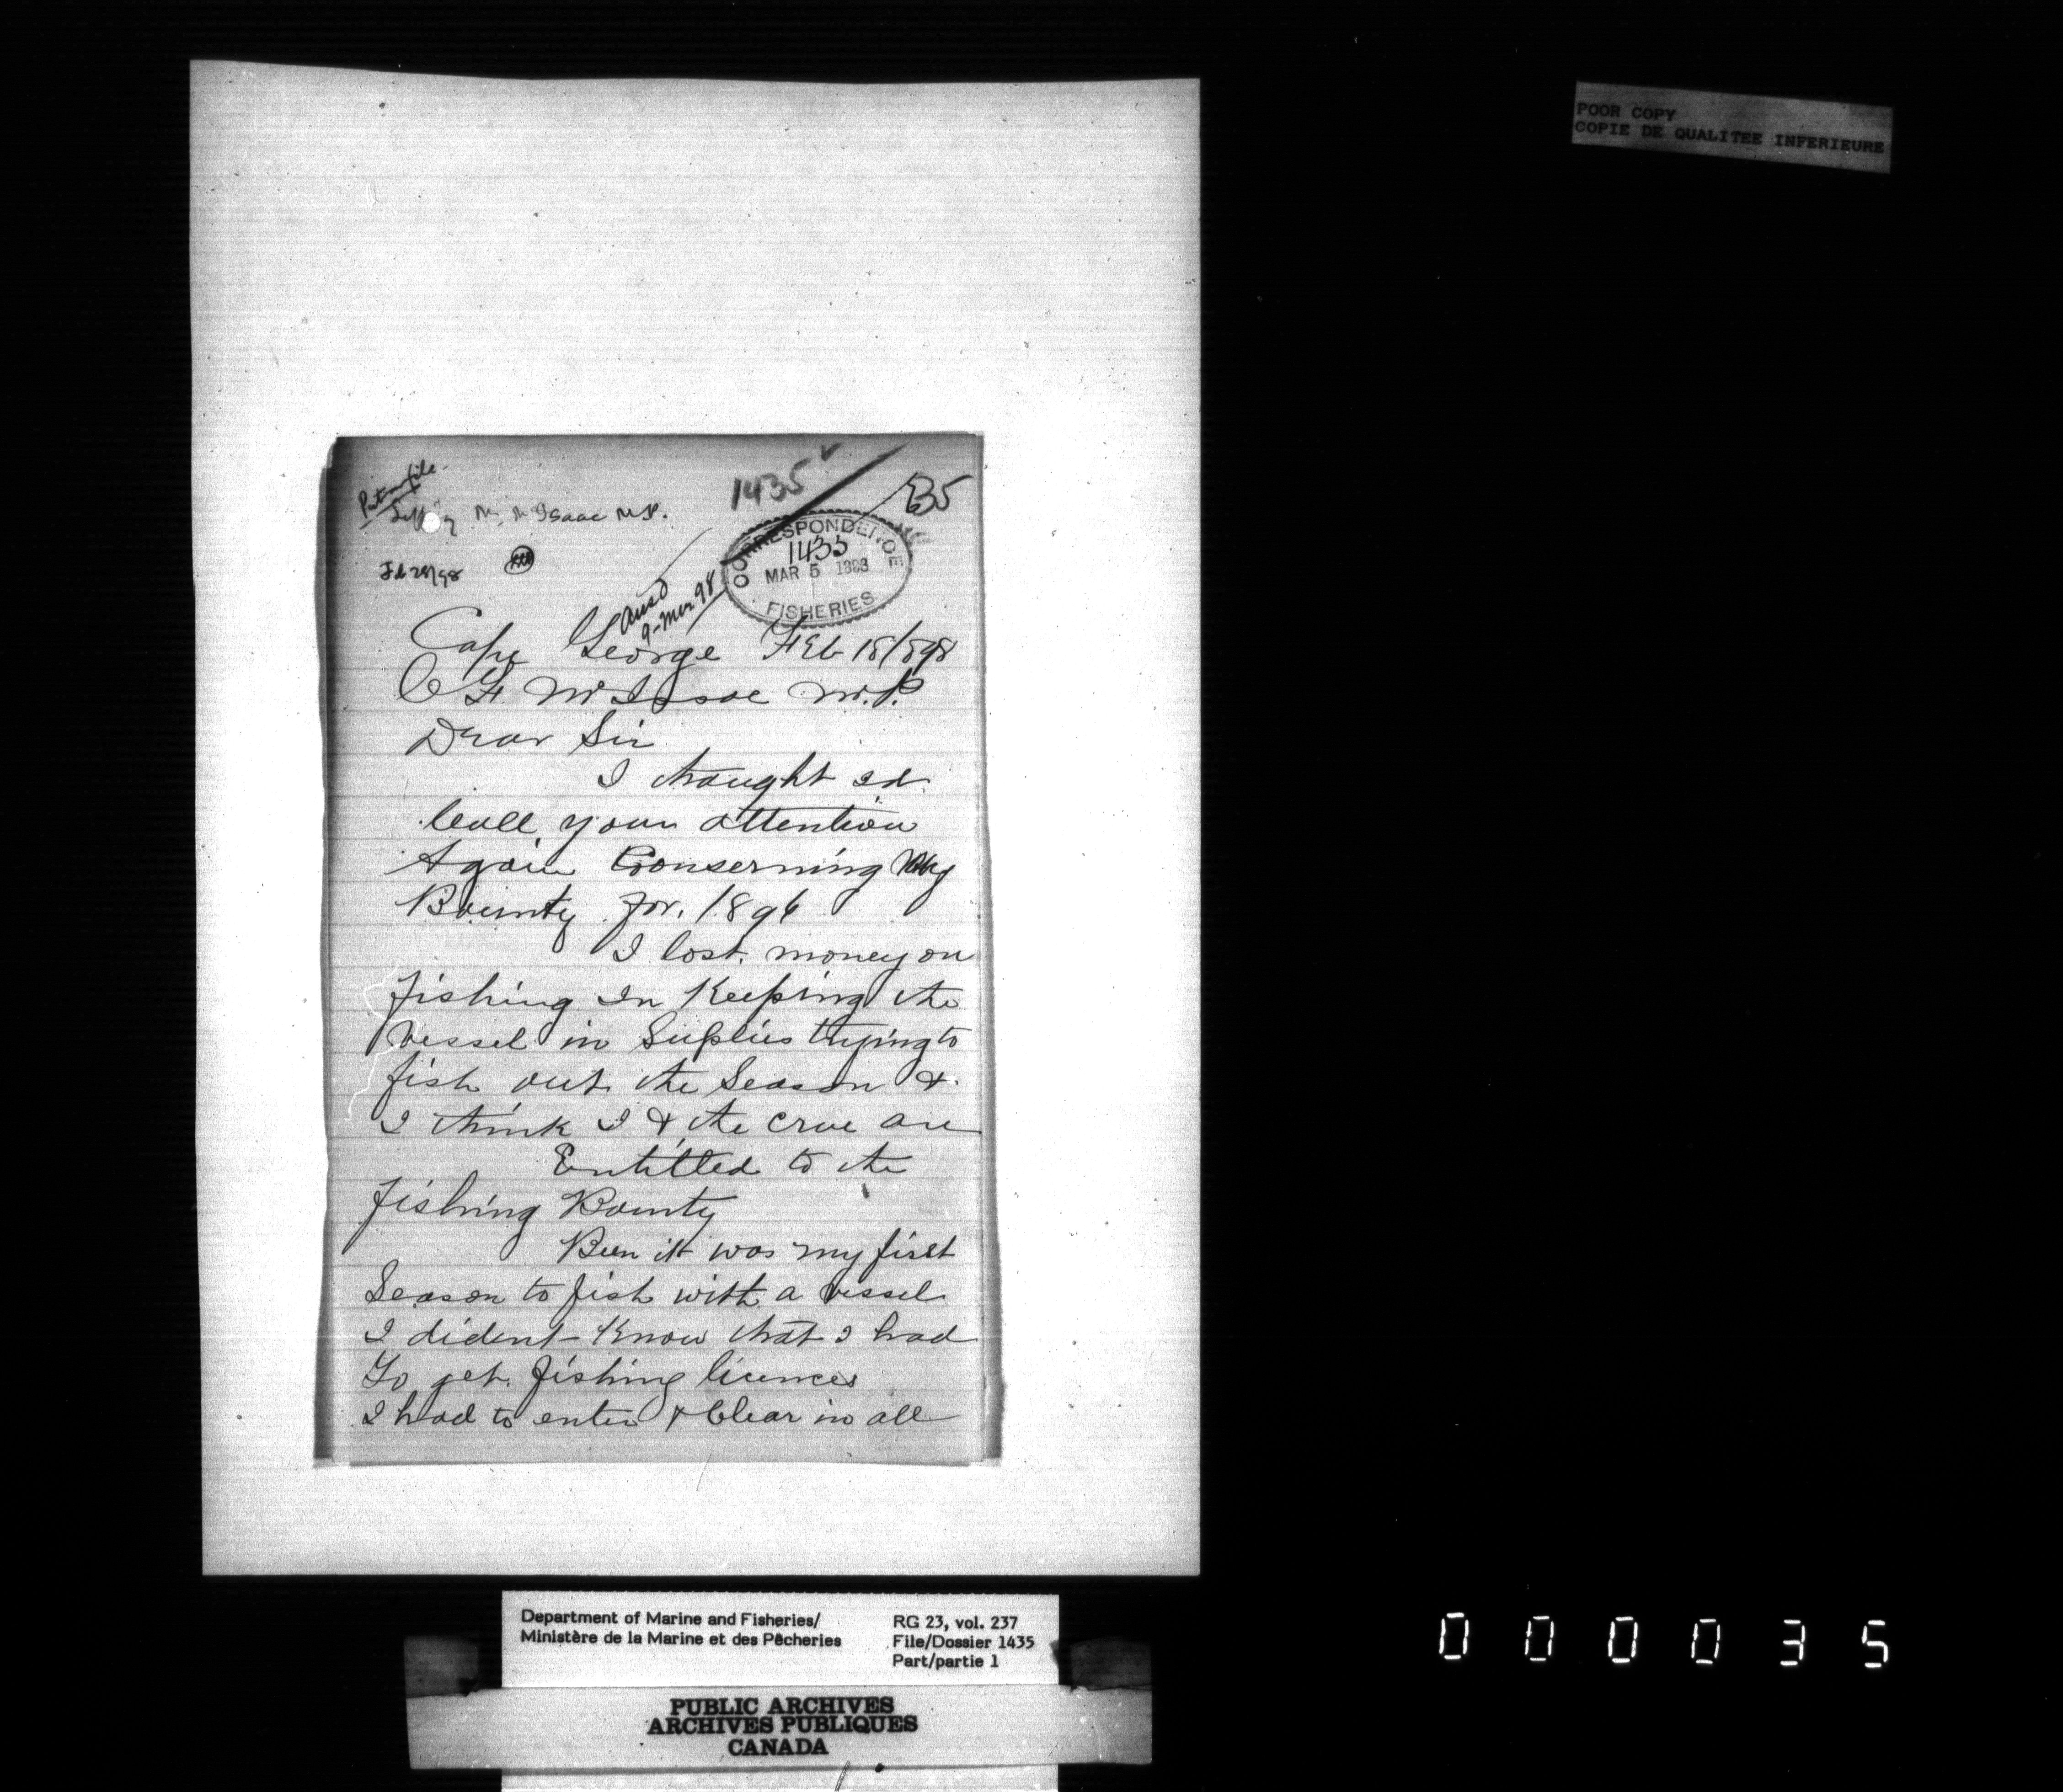 POOR COPY
COPIE DE QUALITEE INFERIEURE
Put on file
1435
Mr. McIsaac M.P.
Fb 28/98
CORRESPONDENCE
1435
MAR 5 1898
FISHERIES
Ansd
9-Mar 98
Cape George Feb 18/898
C F McIsaac M.P.
Dear Sir
I thought id
Call your attention
Again Conserning My
Bounty for 1896
I lost money on
fishing In Keeping the
vessel in Suplies trying to
fish out the Season &
I think I & the crue are
Entitled to the
fishing Bounty
Been it was my first
Season to fish with a vessel
I dident Know that I had
To get fishing licences
I had to enter & Clear in all
Department of Marine and Fisheries/
Ministère de la Marine et des Pêcheries
RG 23, vol. 237
File/Dossier 1435
Part/partie 1
PUBLIC ARCHIVES
ARCHIVES PUBLIQUES
CANADA
000035